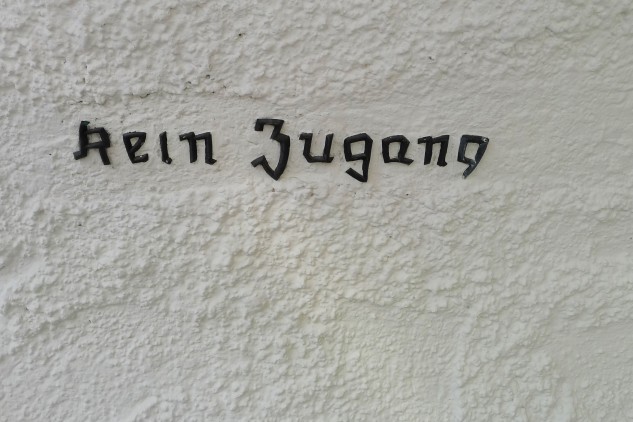 Kein Zugang